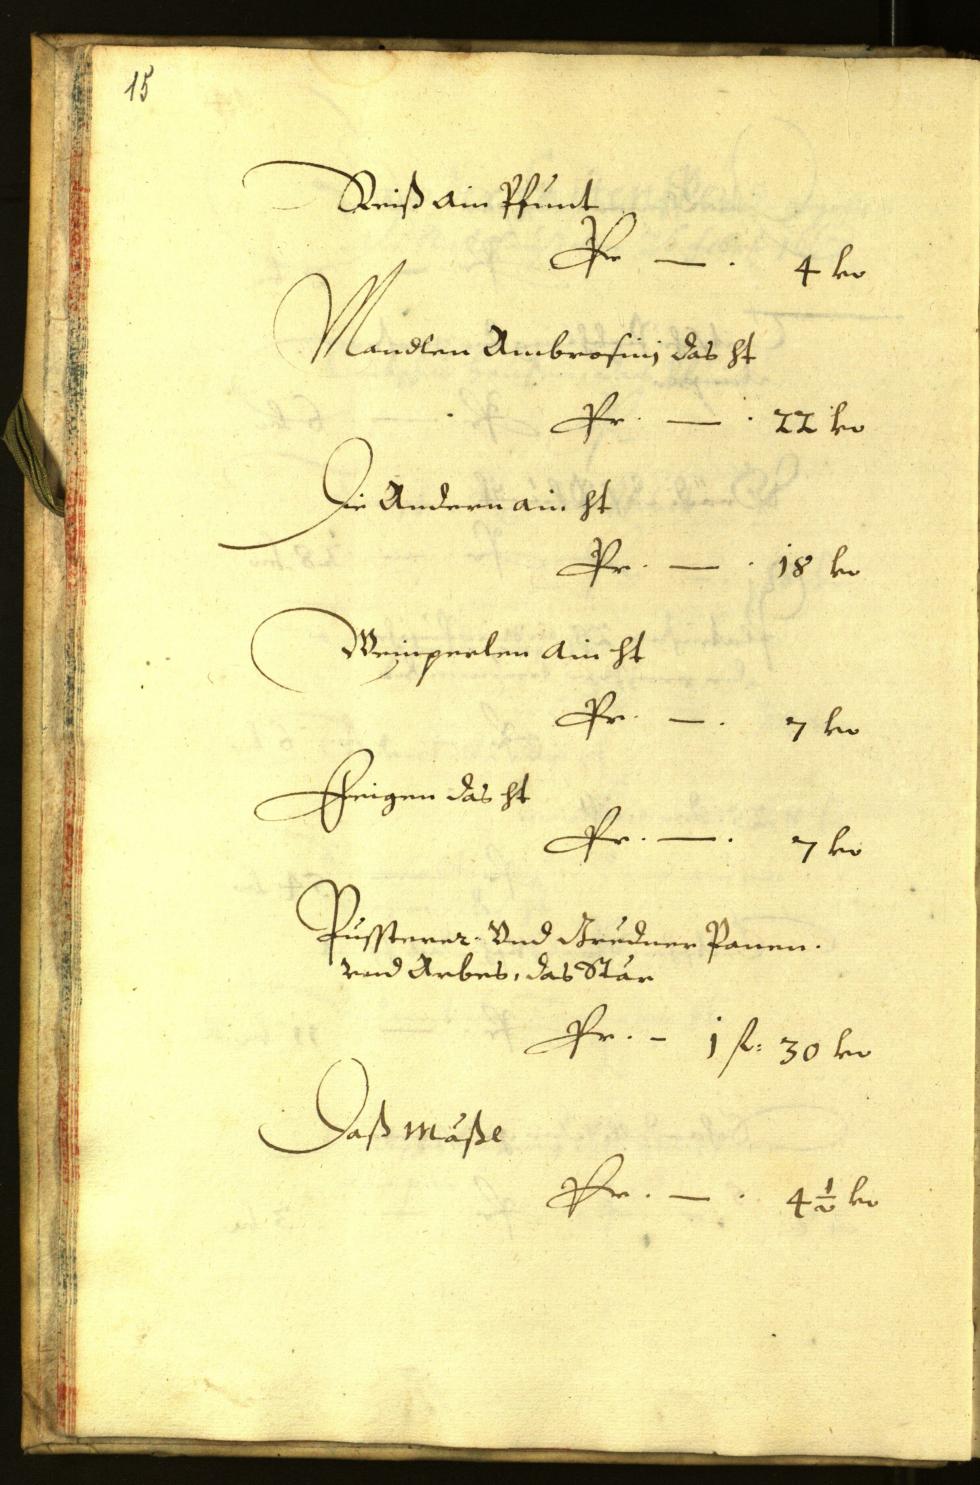 15
Reiß ain Pfunt
Pr — . 4 kr
Mandlen Ambrosinj das ℔
Pr. — . 22 kr
Die Andern ain ℔
Pr. — . 18 kr
Weinperlen ain ℔
Pr. — . 7 kr
Feigen das ℔
Pr. — . 7 kr
Pussterer. Vnd Gredner Ponen.
vnd Arbes, das Stär
Pr. — 1 fl: 30 kr
Daß mäßl
Pr. — . 4 1/2 kr